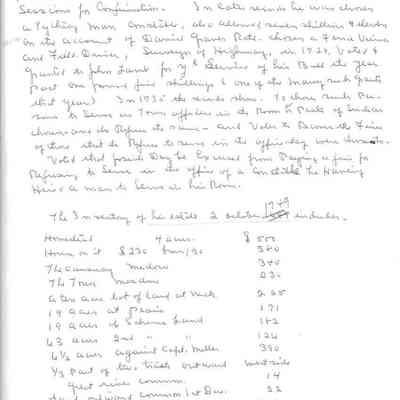 Sessions for Confirmation. In later records he was chosen
a Tything man Constable, also allowed seven shillings & eleven
on the account of Daniel Graves Rate. Chosen a Fence Viewer
and Field Driver, Surveyor of Highway, in 1728, Voted &
granted to John Hunt for ye Service of his Bull the year
Past one pound five shillings & one of the many such grants
that year) In 1730 the records show. To chose such Per-
sons to Serve as Town officers in the Room & Place of Such as
chosen and do Refuse the same - and Vote to the Fine
of those that do Refuse to serve in the office they were
Voted that Joseph Day be Excused from Paying a fine for
Refusing to Serve in the office of a Constable he Having
Hired a man to Serve in his Room.
The Inventory of his estate 2 October 1749 includes.
Homestead 4 acres. $ 500
House on it $230 barn/90 320
The Causeway meadow 340
The Town meadow 230
a ten acre lot of Land at 225
19 acres at 171
19 acres of Land 182
63 acres 2nd " " 126
6 1/2 acres against Capt. Miller 390
1/3 part of two tracts outward west side
great river common. 14
outward common 1st Div. 22